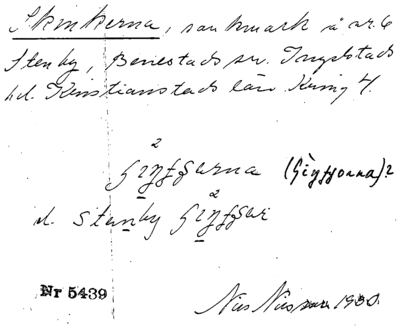 Skinkerna, sankmark å nr. 6
Stenby, Benestads sn. Ingelstads
hd. Kristianstads län. Kring 4.
2
2
d. Stenby
Nr 5439
Nils Nilsson 1930.